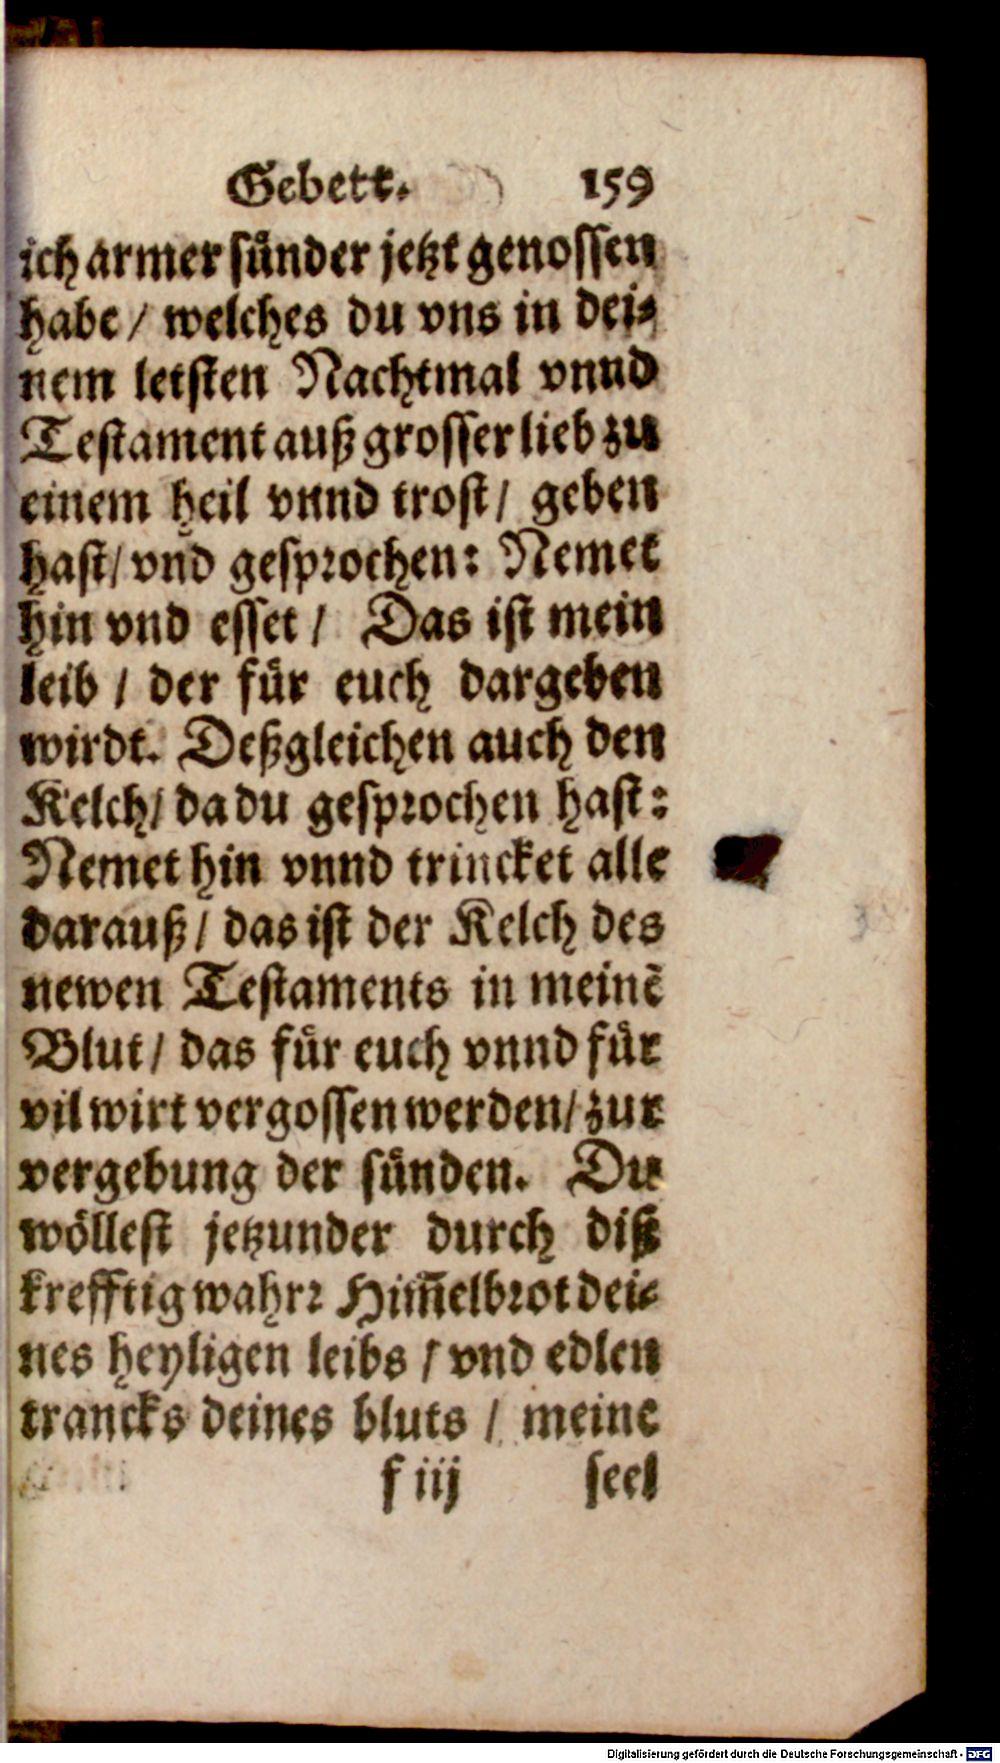 Gebett. 159
ich armer sünder jetzt genossen
habe / welches du vns in dei⸗
nem letsten Nachtmal vnnd
Testament auß grosser lieb zu
einem heil vnnd trost / geben
hast / vnd gesprochen: Nemet
hin vnd esset / Das ist mein
leib / der für euch dargeben
wirdt. Deßgleichen auch den
Kelch / da du gesprochen hast:
Nemet hin vnnd trincket alle
darauß / das ist der Kelch des
newen Testaments in meinē
Blut / das für euch vnnd für
vil wirt vergossen werden / zur
vergebung der sünden. Du
wöllest jetzunder durch diß
krefftig wahrr Him̄elbrot dei⸗
nes heyligen leibs / vnd edlen
trancks deines bluts / meine
f iij seel
Digitalisierung gefördert durch die Deutsche Forschungsgemeinschaft - DFG